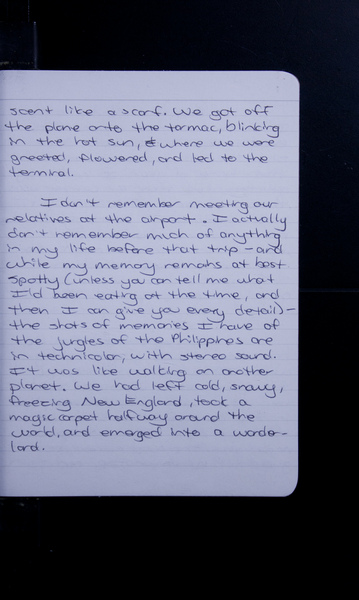 scent like a scarf. We got off
the plane onto the tarmac, blinking
in the hot sun, & where we were
greeted, flowered, and led to the
terminal.
I don't remember meeting our
relatives at the airport. I actually
don't remember much of anything
in my life before that trip - and
while my memory remains at best
spotty (unless you can tell me what
I'd been eating at the time, and
then I can give you every detail) -
the shots of memories I have of
the jungles of the Philippines are
in technicolor, with stereo sound.
It was like walking on another
planet. We had left cold, snowy,
freezing New England, took a
magic carpet halfway around the
world, and emerged into a wonder-
land.